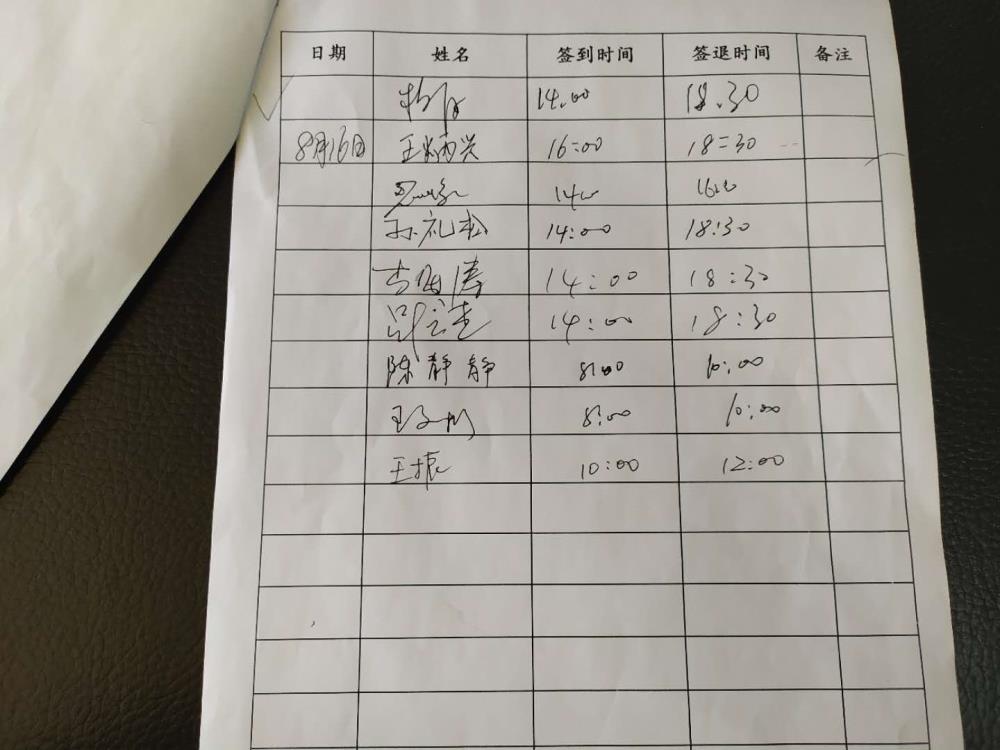 日期 姓名 签到时间 签退时间 备注
14.00 18.30
8月16日 王炳兴 16:00 18:30
14:00 16:00
孙礼松 14:00 18:30
14:00 18:30
14:00 18:30
陈静静 8:00 10:00
8:00 10:00
王振 10:00 12:00